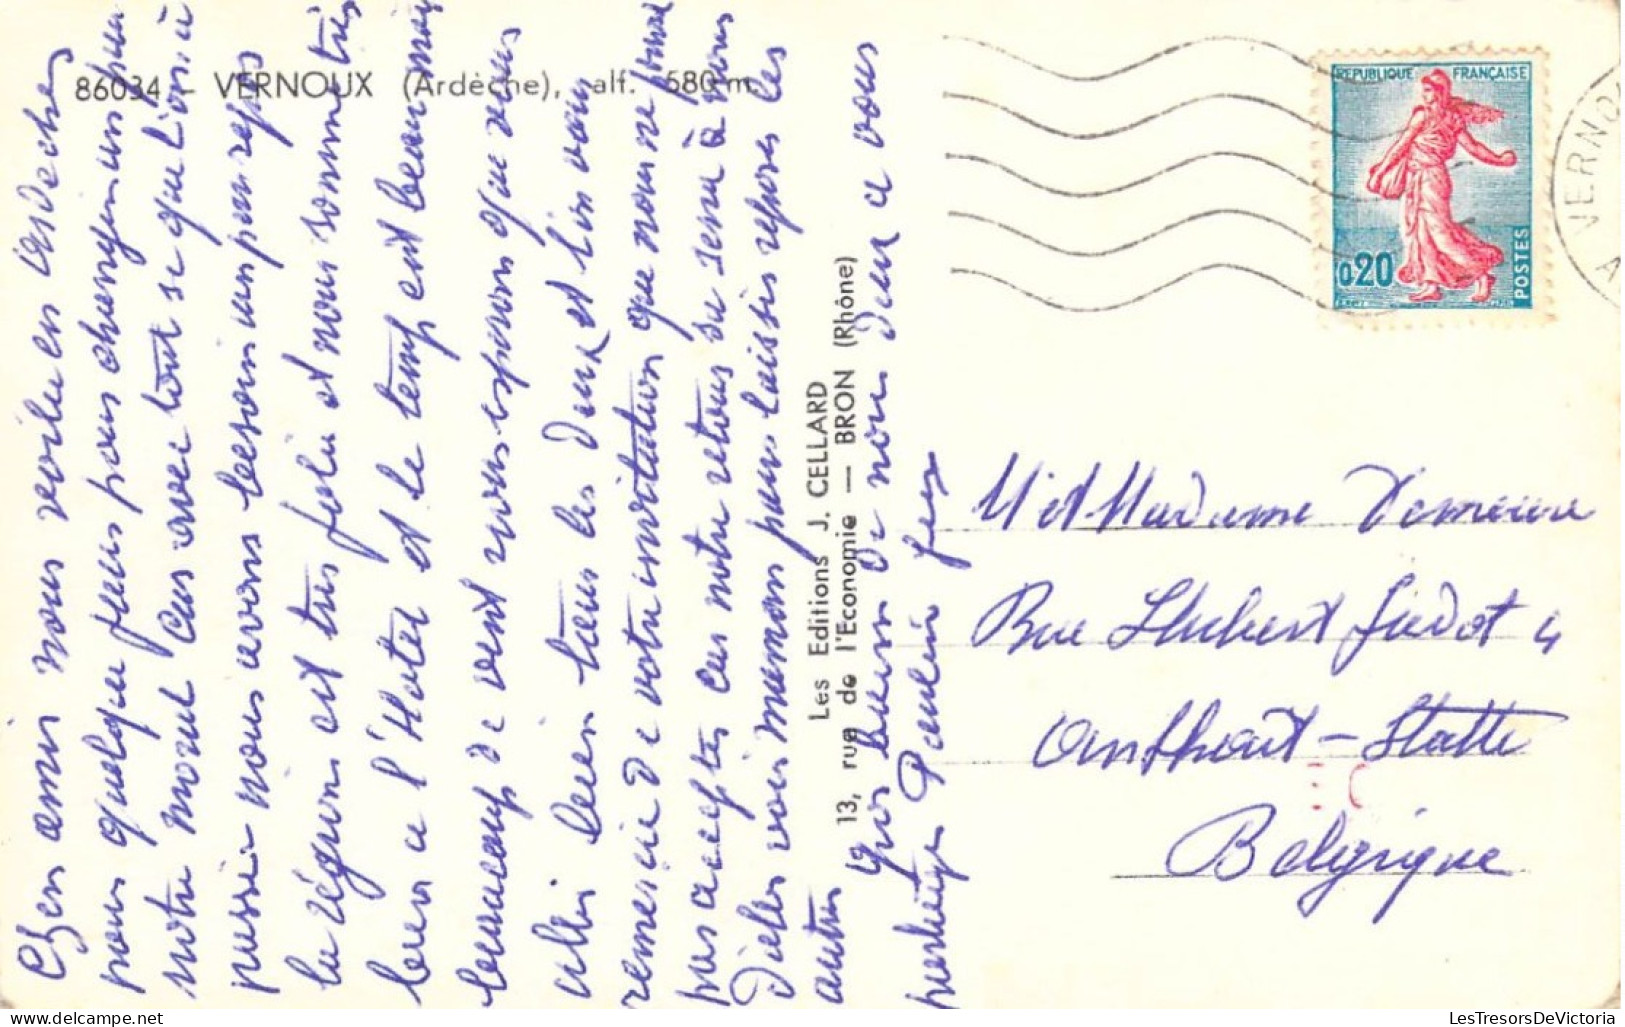 86034 - VERNOUX (Ardèche), alt. 580 m.
Chers amis nous voilà en Ardeches
pour quelque jours pour changer un peu
notre moral car avec tout se que l'on a
passer nous avons besoin un peu repos
la région est très jolie et nous somme très
bien a l'Hotel et le temp est beau mais
beaucoup de vent nous esperons que vous
allez bien tous les deux et l'on vous
remercie de votre invitation que nous ne pouvons
pas accepter car notre retour se sera à nous
voir maman pour laisser reposer les
autres
Gros baiser de nous deux a vous
Les Editions J. CELLARD
13, rue de l'Economie — BRON (Rhône)
REPUBLIQUE FRANÇAISE
0,20
POSTES
VERNO
A
M et Madame
Rue Hubert 4
Statte
Belgique
LesTresorsDeVictoria
www.delcampe.net